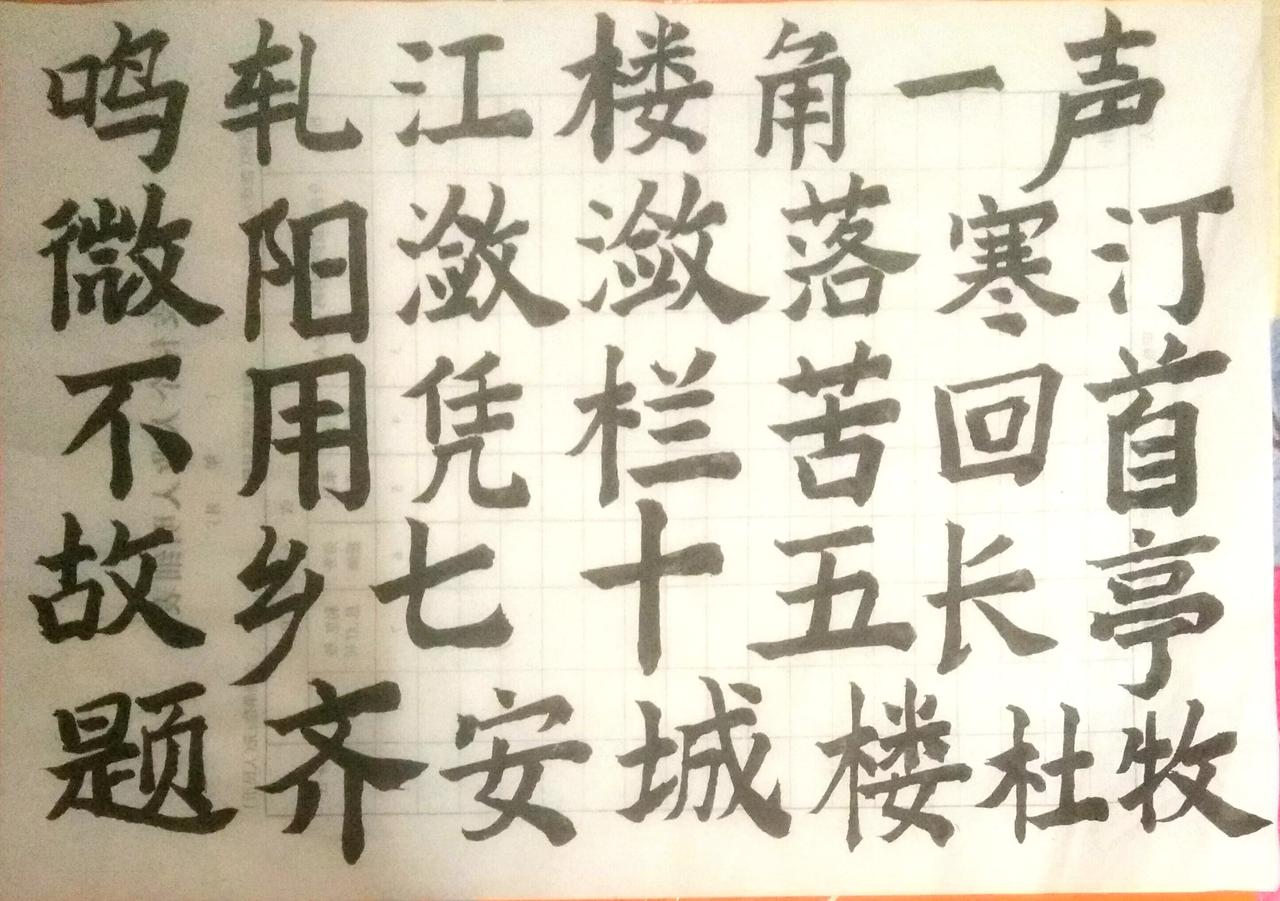 鸣轧江楼角一声
微阳潋潋落寒汀
不用凭栏苦回首
故乡七十五长亭
题齐安城楼杜牧